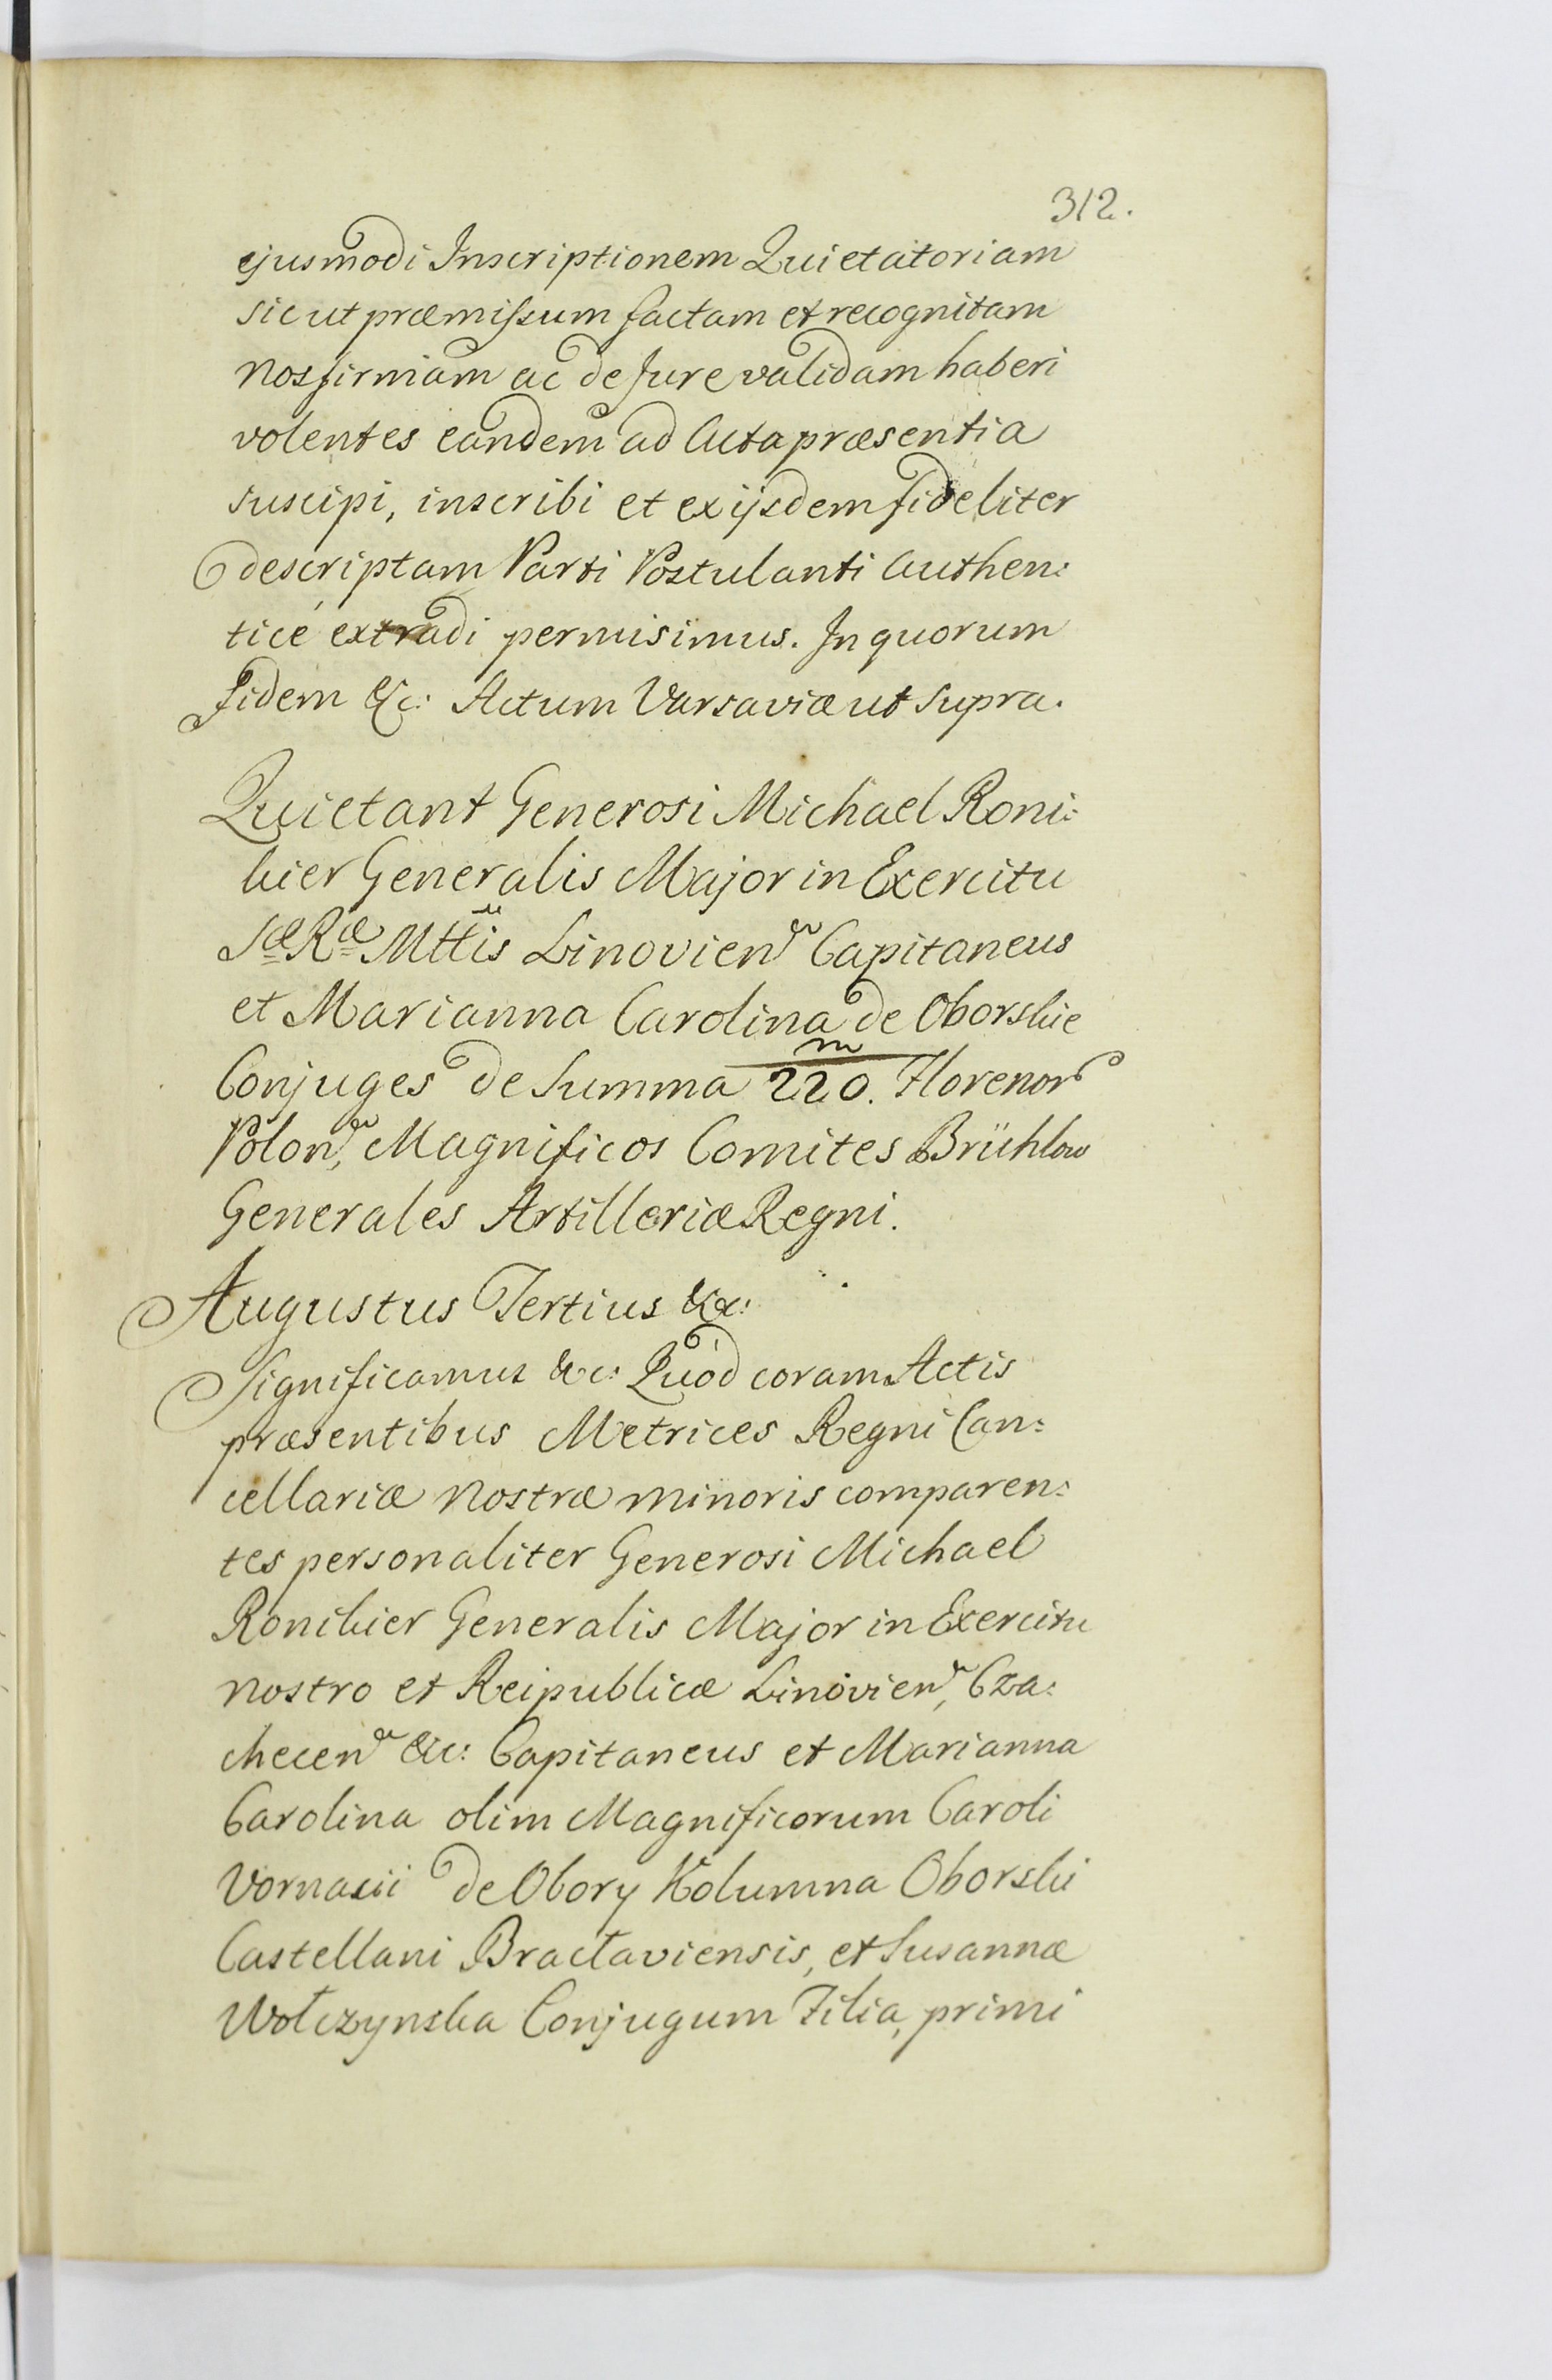 312.
ejusmodi Inscriptionem Quietatoriam
sicut præmissum factam et recognitam
Nos firmam ac de Jure validam haberi
volentes eandem ad Acta præsentia
suscipi, inscribi et ex ijsdem fideliter
descriptam Parti Postulanti Authen:
ticé extradi permisimus. In quorum
fidem &c: Actum Varsaviæ ut supra.
Quietant Generosi Michael Roni:
kier Generalis Major in Exercitu
Sæ Ræ Mttis Linovien Capitaneus
et Marianna Carolina de Oborskie
Conjuges de Summa 220.m Florenor
Polon, Magnificos Comites Brühlow
Generales Artilleriæ Regni.
Augustus Tertius &c:
Significamus &c: Quòd coram Actis
præsentibus Metrices Regni Can:
cellariæ Nostræ minoris comparen:
tes personaliter Generosi Michael
Ronikier Generalis Major in Exercitu
nostro et Reipublicæ Linovien, Cza:
checen &c: Capitaneus et Marianna
Carolina olim Magnificorum Caroli
de Obory Kolumna Oborski
Castellani Braclaviensis, et Susannæ
Wołczynska Conjugum Filia, primi